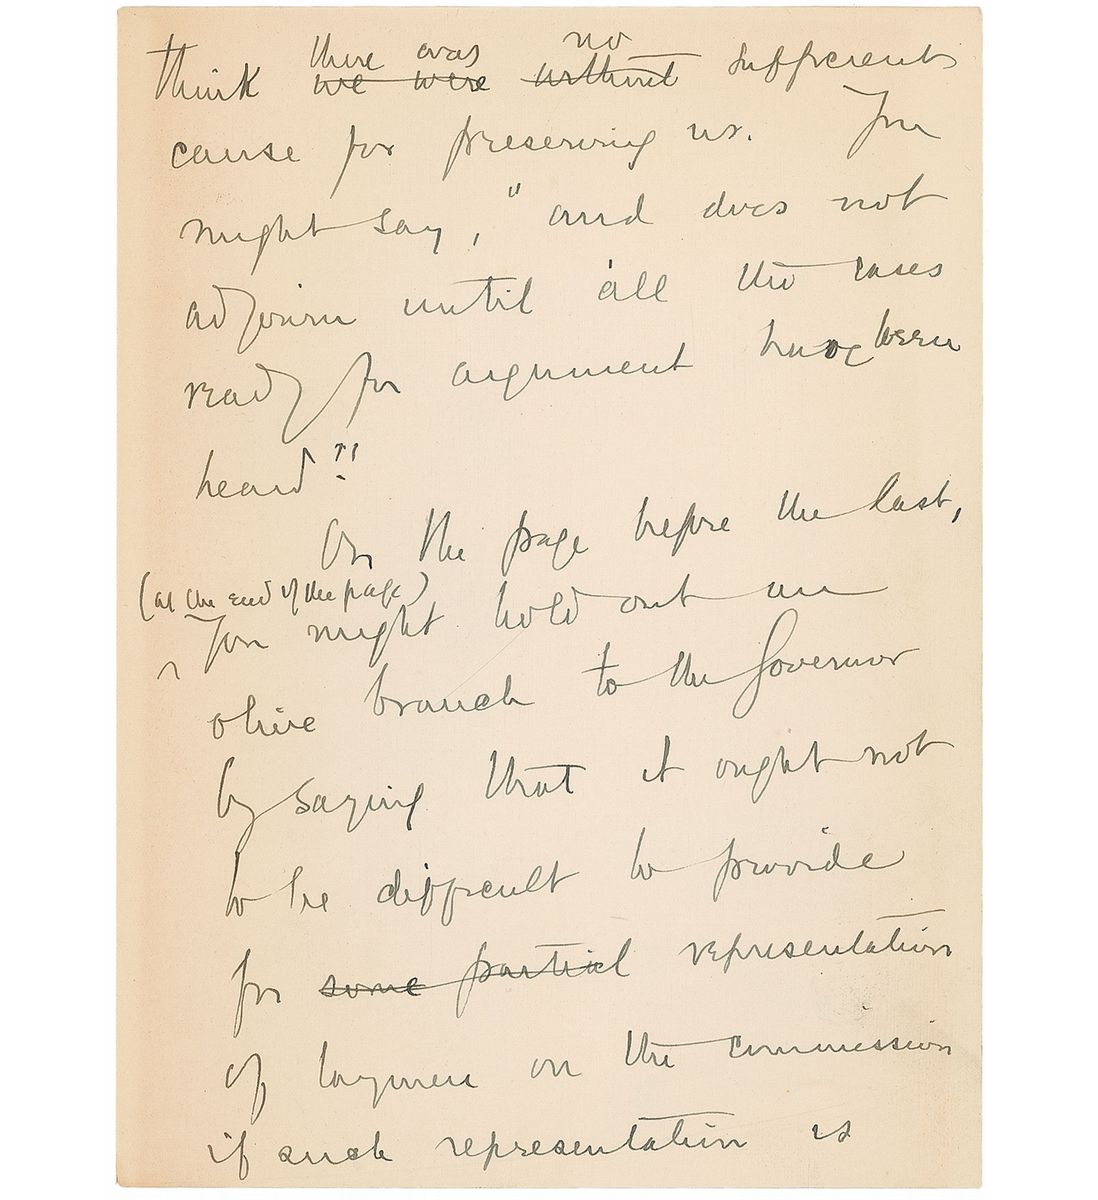 there was no
think we were without sufficient
cause for preserving us. You
might say, "and does not
adjourn until all the cases
ready for argument have been
heard"!
On the page before the last,
(at the end of the page)
^ You might hold out an
olive branch to the Governor
by saying that it ought not
to be difficult to provide
for some partial representation
of laymen on the commission
if such representation is